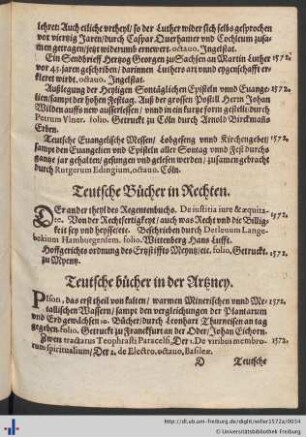 lehret: Auch etliche vrtheyl / so der Luther wider sich selbs gesprochen
vor viertzig Jaren / durch Caspar Querhamer vnd Cochleum zusa-
men getragen / jetzt widerumb ernewert. octauo. Ingelstat.
Ein Sendbrieff Hertzog Georgen zu Sachsen an Martin Luther 1572.
vor 45. jaren geschriben / darinnen Luthers art vnnd eygenschafft er-
kleret wirdt. octauo. Ingelstat.
Außlegung der Heyligen Sontäglichen Episteln vnnd Euange- 1572.
lien / sampt der hohen Festtag. Auß der grossen Postill Herrn Johan
Wilden auffs new außerlesen / vnnd in ein kurtz form gestellt: durch
Petrum Vlner. folio. Getruckt zu Cöln durch Arnold Birckmans
Erben.
Teutsche Euangelische Messen / Lobgeseng vnnd Kirchengebet / 1572.
sampt den Euangelien vnd Episteln aller Sontag vnnd Fest durchs
gantze jar gehalten / gesungen vnd gelesen werden / zusamen gebracht
durch Rutgerum Edingium, octauo. Cöln.
Teutsche Bücher in Rechten.
DEr ander theyl des Regentenbuchs. De iustitia iure & æquita-
te. Von der Rechtfertigkeyt / auch was Recht vnd die Billig- 1572.
keit sey vnd heysse / etc. Beschrieben durch Detleuum Lange-
bekium Hamburgensem. folio. Wittenberg Hans Lufft.
Hoffgerichts ordnung des Ertzstiffts Meyntz / etc. folio. Getruckt 1572.
zu Meyntz.
Teutsche bücher in der Artzney.
PIson, das erst theil von kalten / warmen Minerischen vnnd Me- 1572.
tallischen Wassern / sampt den vergleichungen der Plantarum
vnd Erdgewächsen 10. Bücher / durch Leonhart Thurneisen an tag
gegeben. folio. Getruckt zu Franckfurt an der Oder / Johan Eichorn.
Zween tractatus Teophrasti Paracelsi, Der 1. De viribus membro- 1572.
rum spiritualium / Der 2. de Electro, octauo, Basileæ.
D Teutsche
http://dl.ub.uni-freiburg.de/diglit/willer1572a/0034
© Universitätsbibliothek Freiburg